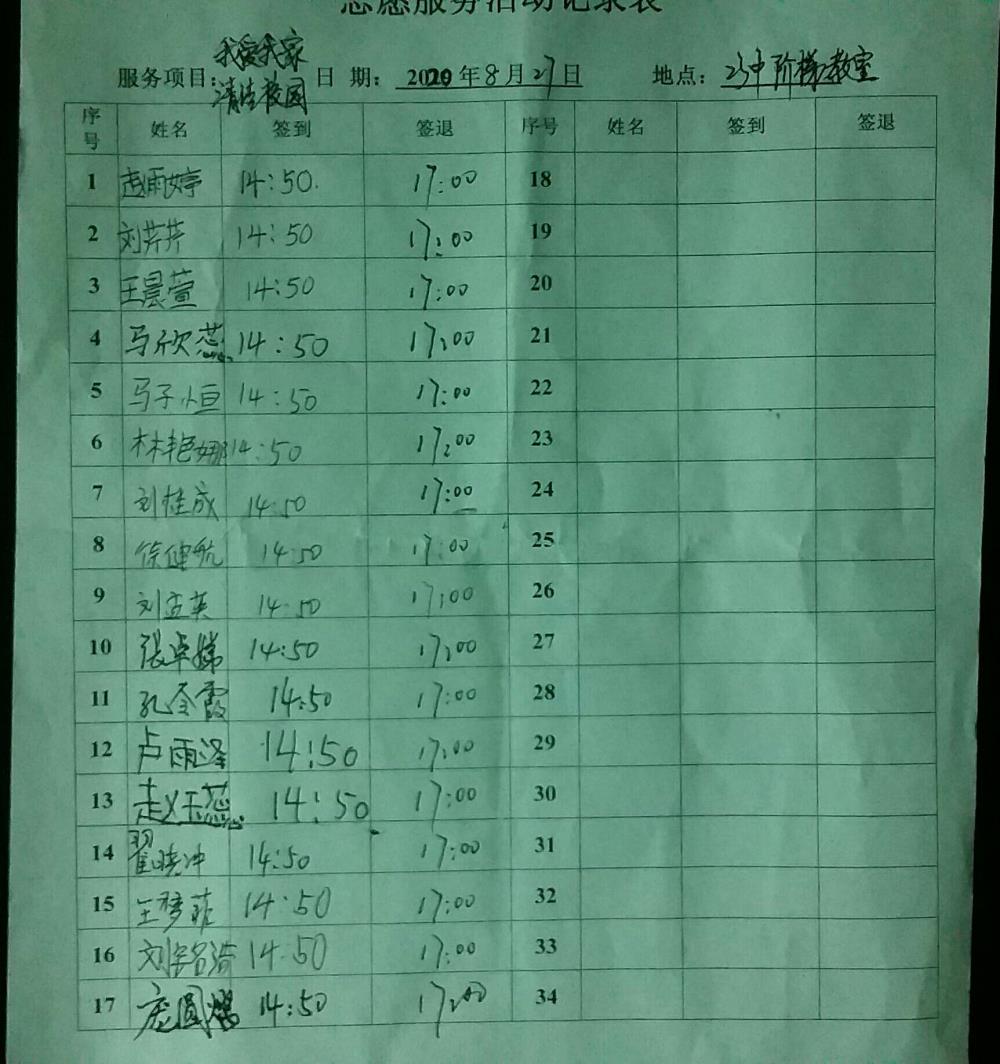 志愿服务活动记录表
服务项目：我爱我家 清洁校园 日 期： 2020 年 8 月 27 日 地点：23中阶梯教室
序号 姓名 签到 签退 序号 姓名 签到 签退
1 赵雨婷 14:50. 17:00 18
2 刘芹芹 14:50 17:00 19
3 王晨萱 14:50 17:00 20
4 马欣蕊 14:50 17:00 21
5 马子恒 14:50 17:00 22
6 林艳娜 14:50 17:00 23
7 刘桂成 14:50 17:00 24
8 徐健航 14:50 17:00 25
9 刘孟英 14:50 17:00 26
10 张卓娣 14:50 17:00 27
11 孔令霞 14:50 17:00 28
12 卢雨泽 14:50 17:00 29
13 赵玉蕊 14:50 17:00 30
14 翟晓冲 14:50 17:00 31
15 王梦菲 14:50 17:00 32
16 刘宇洛 14:50 17:00 33
17 庞圆 14:50 17:00 34